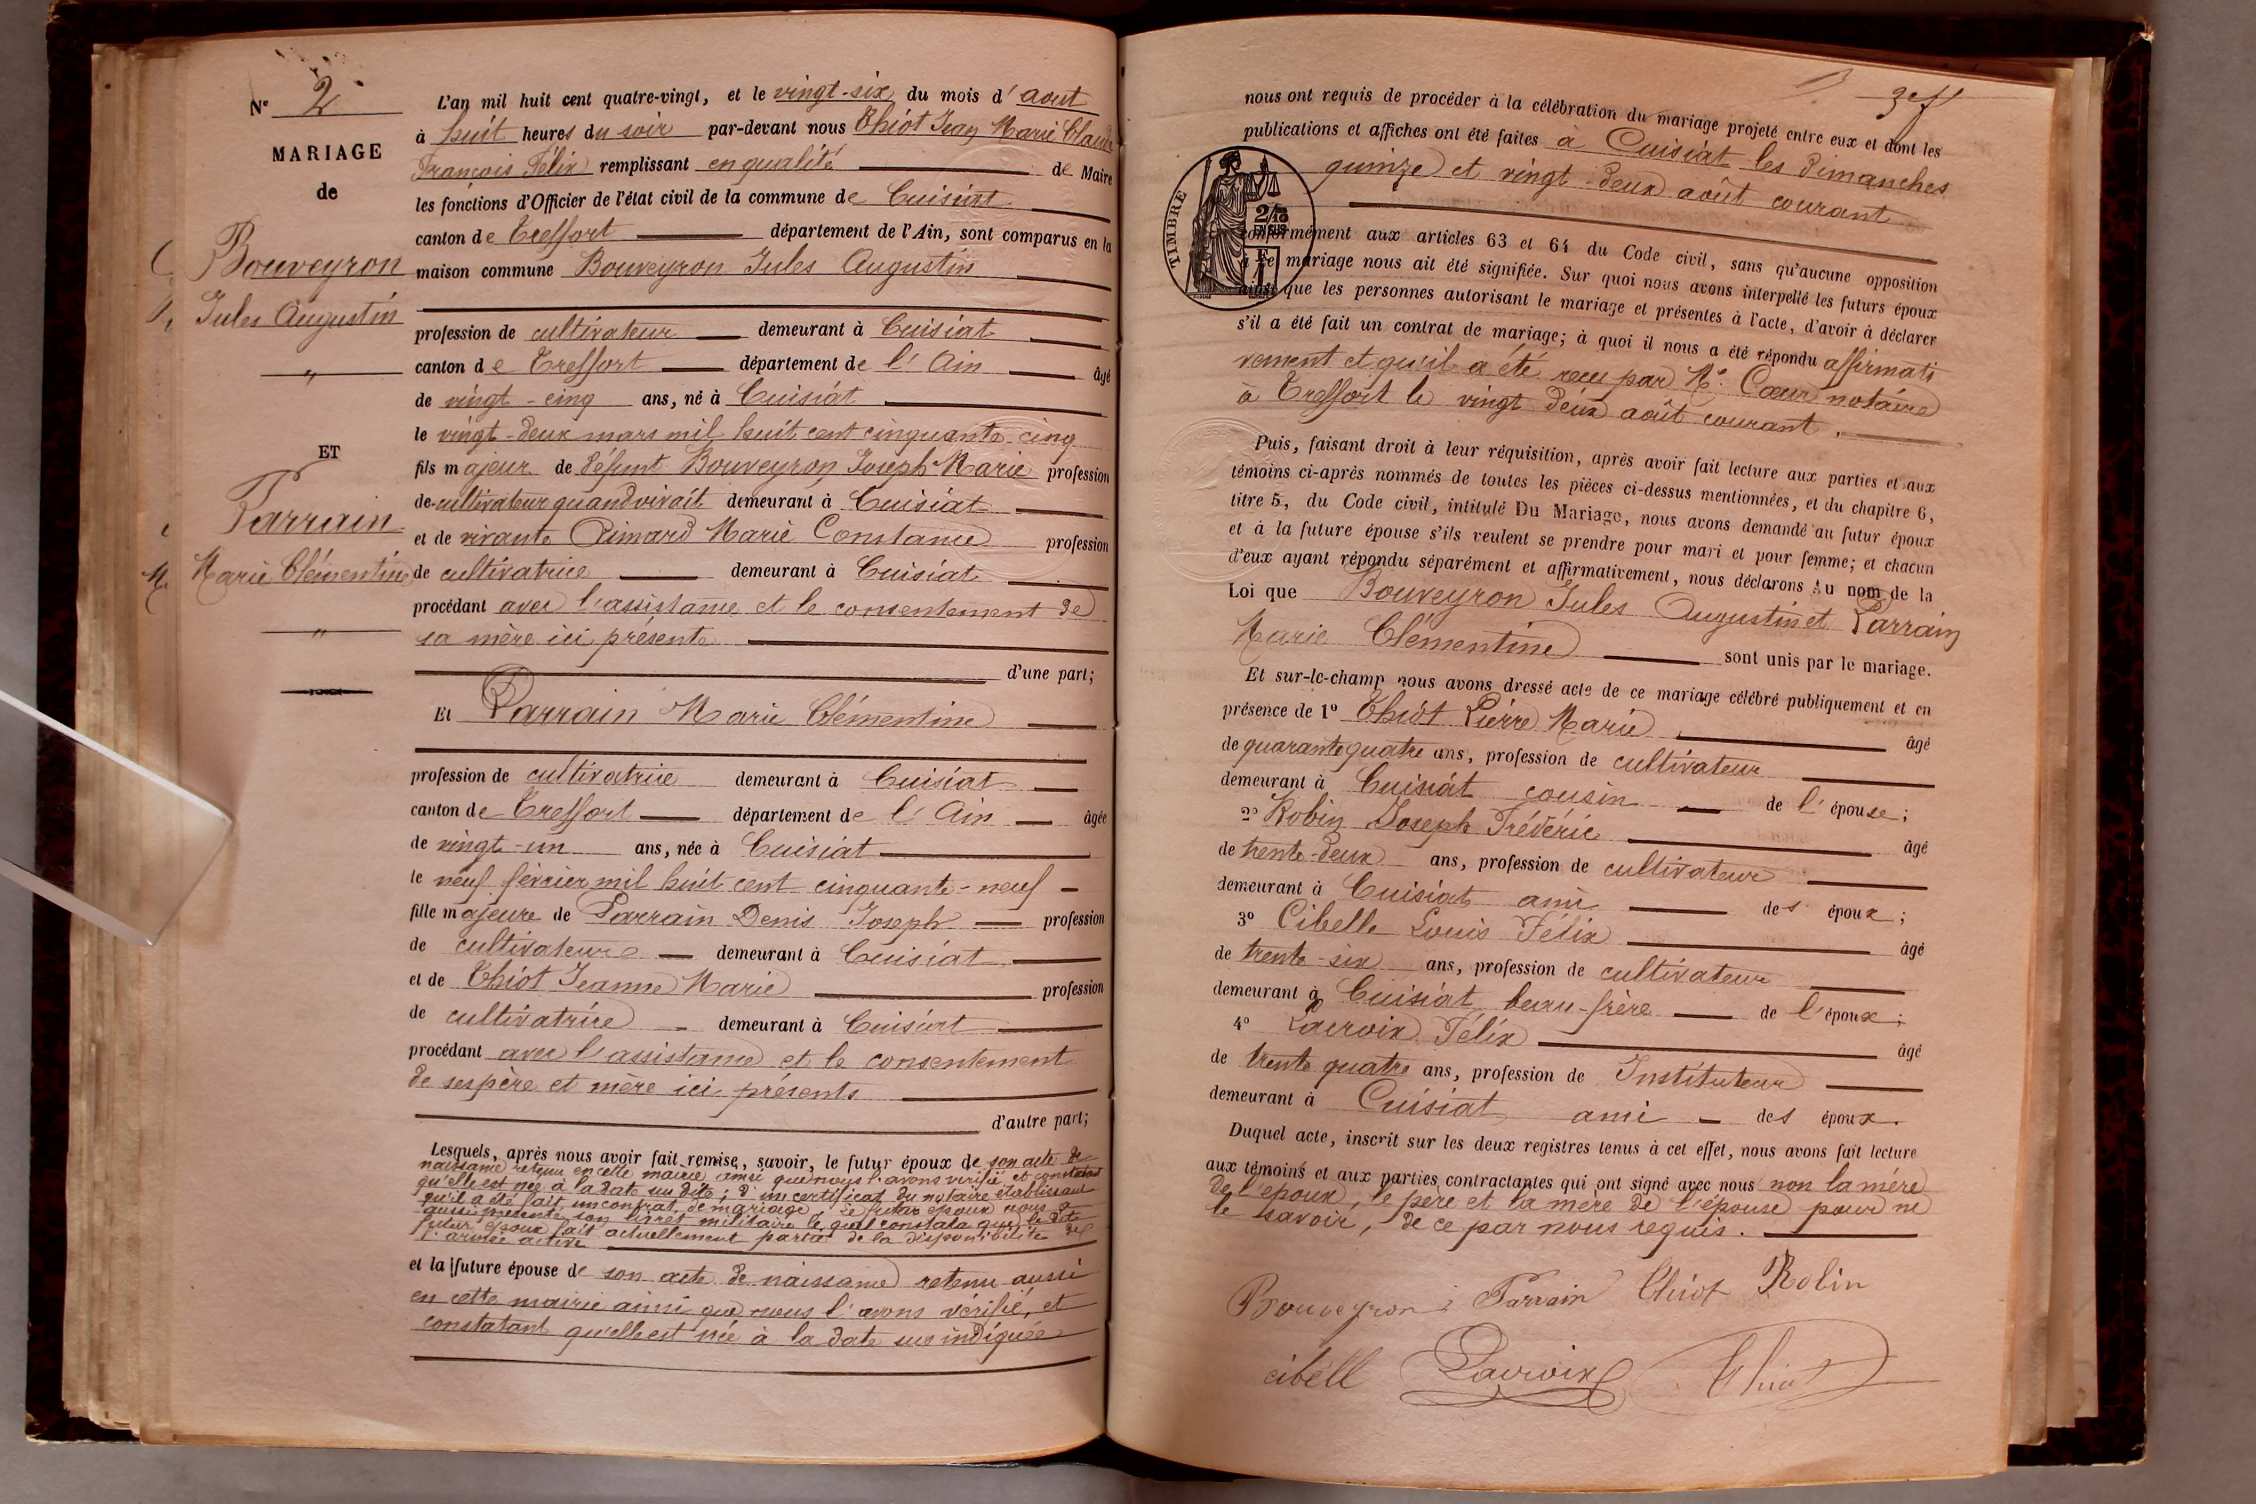 N° 2
MARIAGE
de
Bouveyron
Jules Augustin
"
ET
Parrain
Marie Clémentine
"
L'an mil huit cent quatre-vingt, et le vingt-six du mois d' aout
à huit heures du soir par-devant nous Thiot Jean Marie Claude
François Félix remplissant en qualité de Maire
les fonctions d'Officier de l'état civil de la commune de Cuisiat
canton de Treffort département de l'Ain, sont comparus en la
maison commune Bouveyron Jules Augustin
profession de cultivateur demeurant à Cuisiat
canton de Treffort département de l'Ain âgé
de vingt-cinq ans, né à Cuisiat
le vingt-deux mars mil huit cent cinquante-cinq
fils majeur de défunt Bouveyron Joseph Marie profession
de cultivateur quand vivait demeurant à Cuisiat
et de vivante Pimard Marie Constance profession
de cultivatrice demeurant à Cuisiat
procédant avec l'assistance et le consentement de
sa mère ici présente
d'une part;
Et Parrain Marie Clémentine
profession de cultivatrice demeurant à Cuisiat
canton de Treffort département de l'Ain âgée
de vingt-un ans, née à Cuisiat
le neuf février mil huit cent cinquante-neuf
fille majeure de Parrain Denis Joseph profession
de cultivateur demeurant à Cuisiat
et de Thiot Jeanne Marie profession
de cultivatrice demeurant à Cuisiat
procédant avec l'assistance et le consentement
de ses père et mère ici présents
d'autre part;
Lesquels, après nous avoir fait remise, savoir, le futur époux de son acte de
naissance retenu en cette mairie, ainsi que nous l'avons vérifié, et constatant
qu'elle est née à la date sus dite; d'un certificat du notaire établissant
qu'il a été fait un contrat de mariage. Le futur époux nous a
aussi présenté son livret militaire le quel constata que le dit
futur époux fait actuellement partie de la disponibilité de
l'armée active
et la future épouse de son acte de naissance retenu aussi
en cette mairie ainsi que nous l'avons vérifié, et
constatant qu'elle est née à la date sus indiquée
nous ont requis de procéder à la célébration du mariage projeté entre eux et dont les
publications et affiches ont été faites à Cuisiat les dimanches
quinze et vingt-deux août courant
TIMBRE
conformément aux articles 63 et 64 du Code civil, sans qu'aucune opposition
à ce mariage nous ait été signifiée. Sur quoi nous avons interpellé les futurs époux
ainsi que les personnes autorisant le mariage et présentes à l'acte, d'avoir à déclarer
s'il a été fait un contrat de mariage; à quoi il nous a été répondu affirmati
vement et qu'il a été reçu par Me Cœur notaire
à Treffort le vingt deux août courant.
Puis, faisant droit à leur réquisition, après avoir fait lecture aux parties et aux
témoins ci-après nommés de toutes les pièces ci-dessus mentionnées, et du chapitre 6,
titre 5, du Code civil, intitulé Du Mariage, nous avons demandé au futur époux
et à la future épouse s'ils veulent se prendre pour mari et pour femme; et chacun
d'eux ayant répondu séparément et affirmativement, nous déclarons Au nom de la
Loi que Bouveyron Jules Augustin et Parrain
Marie Clémentine sont unis par le mariage.
Et sur-le-champ nous avons dressé acte de ce mariage célébré publiquement et en
présence de 1° Thiot Pierre Marie âgé
de quarante quatre ans, profession de cultivateur
demeurant à Cuisiat cousin de l'épouse;
2° Robin Joseph Frédéric âgé
de trente-deux ans, profession de cultivateur
demeurant à Cuisiat ami des époux;
3° Cibelle Louis Félix âgé
de trente-six ans, profession de cultivateur
demeurant à Cuisiat beau-frère de l'époux;
4° Lacroix Félix âgé
de trente quatre ans, profession de Instituteur
demeurant à Cuisiat ami des époux.
Duquel acte, inscrit sur les deux registres tenus à cet effet, nous avons fait lecture
aux témoins et aux parties contractantes qui ont signé avec nous non la mère
de l'époux, le père et la mère de l'épouse pour ne
le savoir, de ce par nous requis.
Bouveyron Parrain Thiot Robin
cibell Lacroix Thiot